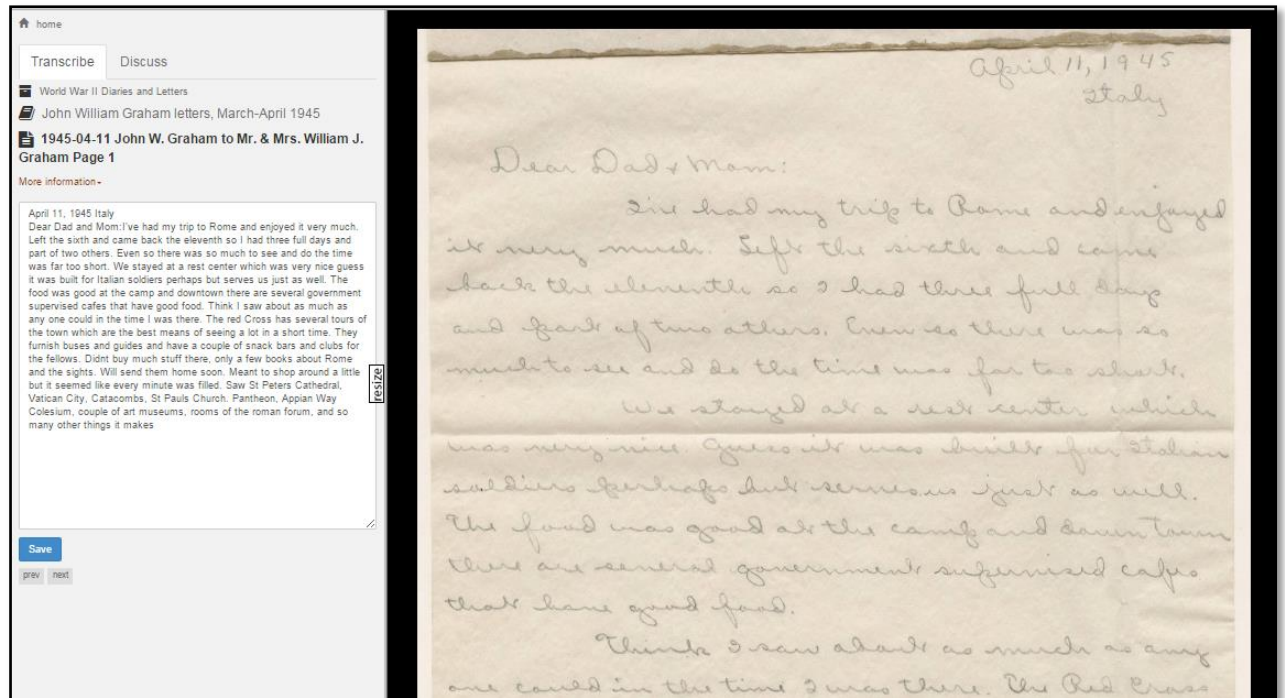 home
Transcribe
Discuss
World War II Diaries and Letters
John William Graham letters, March-April 1945
1945-04-11 John W. Graham to Mr. & Mrs. William J.
Graham Page 1
More information-
April 11, 1945 Italy
Dear Dad and Mom:I've had my trip to Rome and enjoyed it very much.
Left the sixth and came back the eleventh so I had three full days and
part of two others. Even so there was so much to see and do the time
was far too short. We stayed at a rest center which was very nice guess
it was built for Italian soldiers perhaps but serves us just as well. The
food was good at the camp and downtown there are several government
supervised cafes that have good food. Think I saw about as much as
any one could in the time I was there. The red Cross has several tours of
the town which are the best means of seeing a lot in a short time. They
furnish buses and guides and have a couple of snack bars and clubs for
the fellows. Didnt buy much stuff there, only a few books about Rome
and the sights. Will send them home soon. Meant to shop around a little
but it seemed like every minute was filled. Saw St Peters Cathedral,
Vatican City, Catacombs, St Pauls Church. Pantheon, Appian Way
Colesium, couple of art museums, rooms of the roman forum, and so
many other things it makes
resize
Save
prev next
April 11, 1945
Italy
Dear Dad & Mom:
I've had my trip to Rome and enjoyed
it very much. Left the sixth and came
back the eleventh so I had three full days
and part of two others. Even so there was so
much to see and do the time was far too short.
We stayed at a rest center which
was very nice. Guess it was built for Italian
soldiers perhaps but serves us just as well.
The food was good at the camp and down town
there are several government supervised cafes
that have good food.
Think I saw about as much as any
one could in the time I was there. The Red Cross